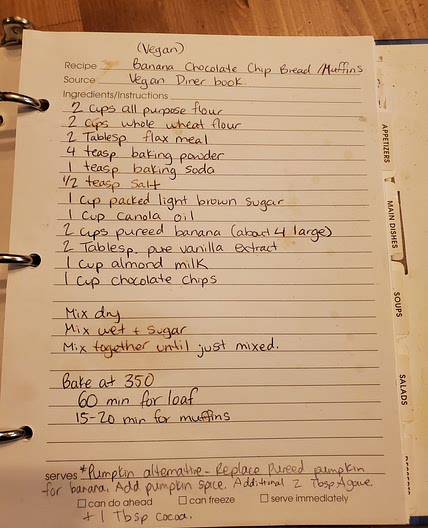 (Vegan)
Recipe Banana Chocolate Chip Bread/Muffins
Source Vegan Diner book
Ingredients/Instructions
2 cups all purpose flour
2 cups whole wheat flour
2 Tablesp flax meal
4 teasp baking powder
1 teasp baking soda
1/2 teasp salt
1 cup packed light brown sugar
1 cup canola oil
2 cups pureed banana (about 4 large)
2 Tablesp. pure vanilla extract
1 cup almond milk
1 cup chocolate chips
Mix dry
Mix wet + sugar
Mix together until just mixed.
Bake at 350
60 min for loaf
15-20 min for muffins
serves *Pumpkin alternative - Replace pureed pumpkin
for banana. Add pumpkin spice. Additional 2 Tbsp Agave.
can do ahead can freeze serve immediately
+ 1 Tbsp cocoa.
APPETIZERS
MAIN DISHES
SOUPS
SALADS